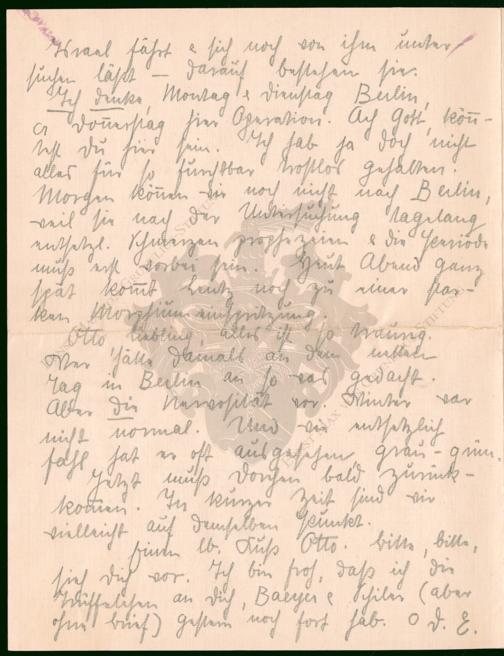 Israel fährt & sich noch von ihm unter-
suchen läßt — darauf bestehen sie.
Ich denke, Montag & Dienstag Berlin,
ca Donnerstag hier Operation. Ach Gott, könn-
test Du hier sein. Ich hab ja doch nicht
alles für so furchtbar trostlos gehalten.
Morgen können wir noch nicht nach Berlin,
weil sie nach der Untersuchung tagelang
entsetzl. Schmerzen prophezeien & die Periode
muß erst vorbei sein. Heut Abend ganz
spät kommt Lentz noch zu einer star-
ken Morphiumeinspritzung.
Otto Liebling alles ist so traurig.
Wer hätte damals an dem netten
Tag in Berlin an so was gedacht.
Aber die Nervosität vor. Winter war
nicht normal. Und wie entsetzlich
fahl hat er oft ausgesehen grau-grün.
Jetzt muß Dorchen bald zurück-
kommen. In kurzer Zeit sind wir
vielleicht auf demselben Punkt.
Einen lb. Kuß Otto. bitte, bitte,
sieh Dich vor. Ich bin froh, daß ich die
an Dich, Baeyer & (aber
ohne Brief) gestern noch fort hab. O d. E.